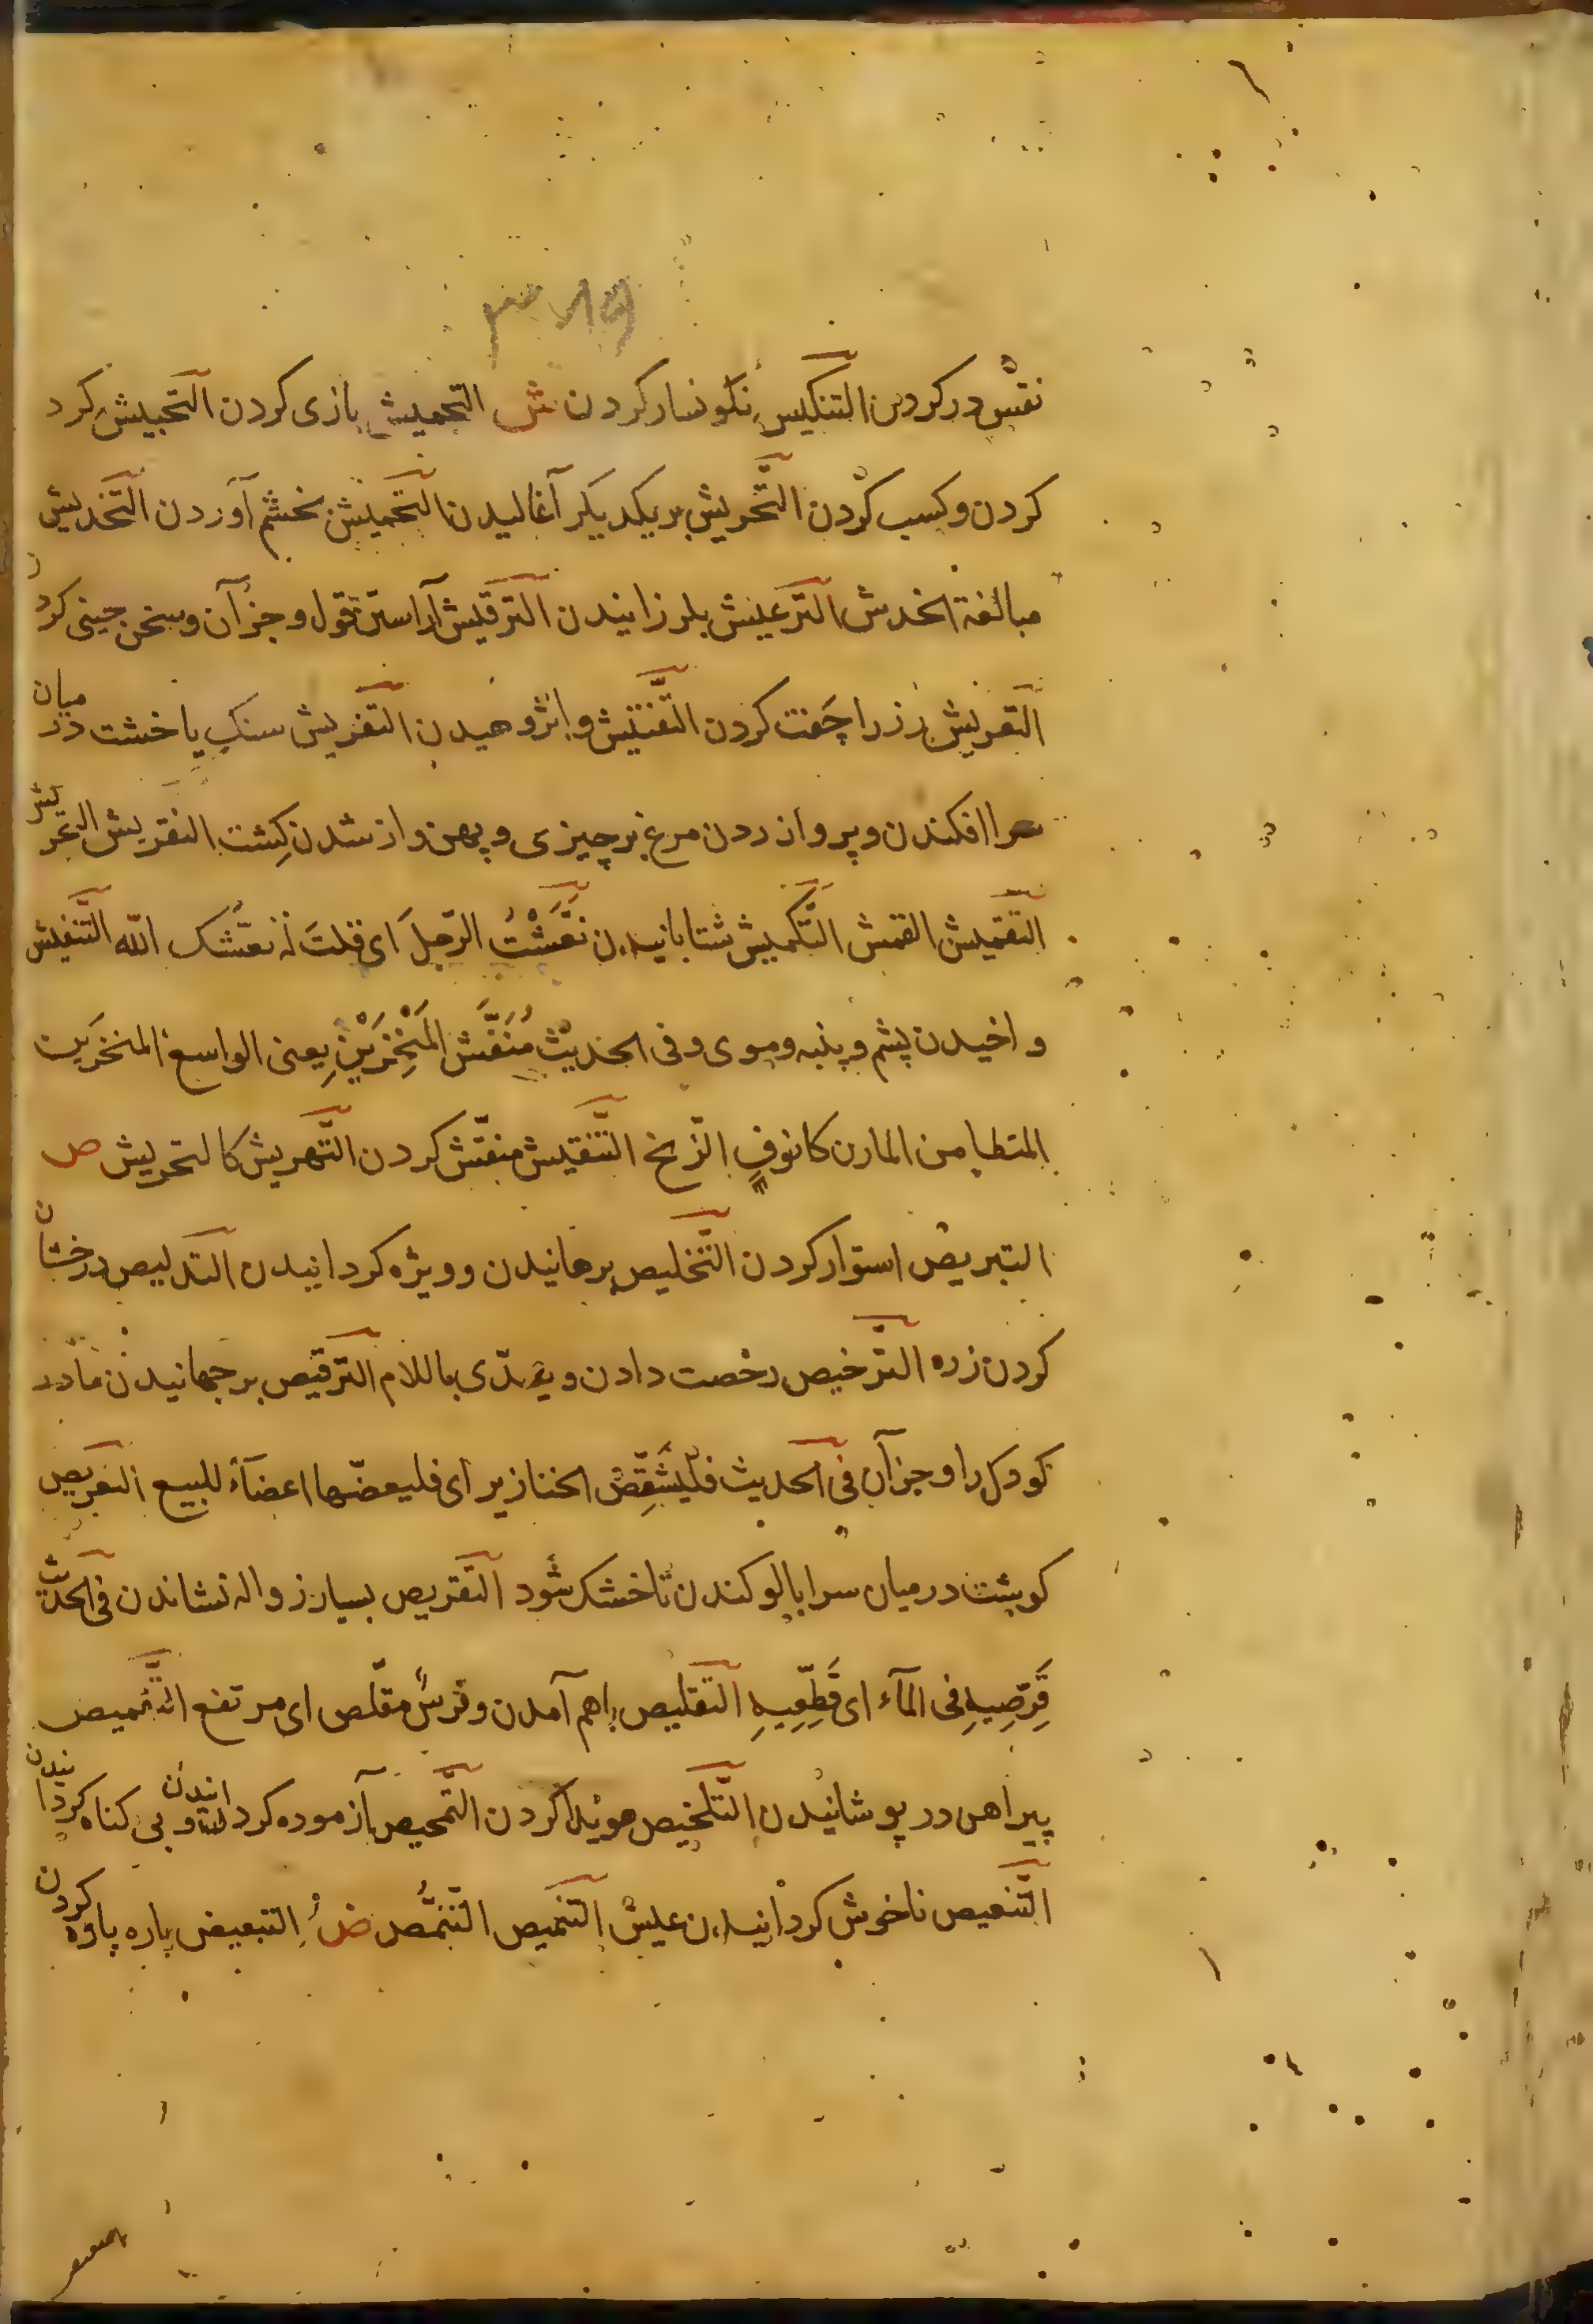 نقش در کردن التنکیس نکونسار کردن ش التجمیش بازی کردن التحبیش کرد
کردن و کسب کردن التحریش بر یکدیکر آغالیدن التحمیش بخشم آوردن التخدیش
مبالغة الخدش الترعیش بلرزانیدن الترقیش آراستن قول و جز آن و سخن چینی کردن
التعریش رز را چفت کردن التفتیش واپژوهیدن التفریش سنک یا خشت در میان
سرا افکندن و پرواز زدن مرغ بر چیزی و پهن واز شدن کِشت التقریش التحریش
التقمیش القمش التکمیش شتابانیدن نَعَّشْتُ الرّجلَ ای قلتَ له نعشک الله التنفیش
واخیدن پشم و پنبه و موی و فی الحدیث مُنَفَّش المَنْخِرَیْنِ یعنی الواسع المنخرَین
المتطامن المارن کانوفِ الزّنج التنقیش منقّش کردن التّهریش کالتحریش ص
التبریص استوار کردن التّخلیص برهانیدن و ویژه کردانیدن التدلیص درخشان
کردن زره التّرخیص رخصت دادن و یعدّی باللام الترقیص برجهانیدن مادر
کودک را و جز آن فی الحدیث فلیُشَقِّصْ الخنازیر ای فلیعضّها اعضآءً للبیع التعریص
کوشت در میان سرا بالو کندن تا خشک شود التقریص بسیار زواله نشاندن فی الحدیث
قَرِّصِیهِ فی المآء ای قَطِّعِیهِ التقلیص باهم آمدن و فرسٌ مقلّص ای مرتفع التّقمیص
پیراهن در پوشانیدن التّلخیص هویدا کردن التّمحیص آزموده کردانیدن و بی کناه کردانیدن
التّنغیص ناخوش کردانیدن عیش التنمیص التّنمُّص ض التبعیض پاره پاره کردن